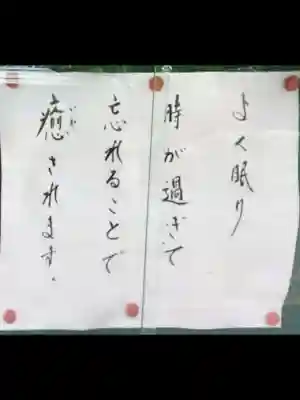 よく眠り
時が過ぎて
忘れることで
癒されます。